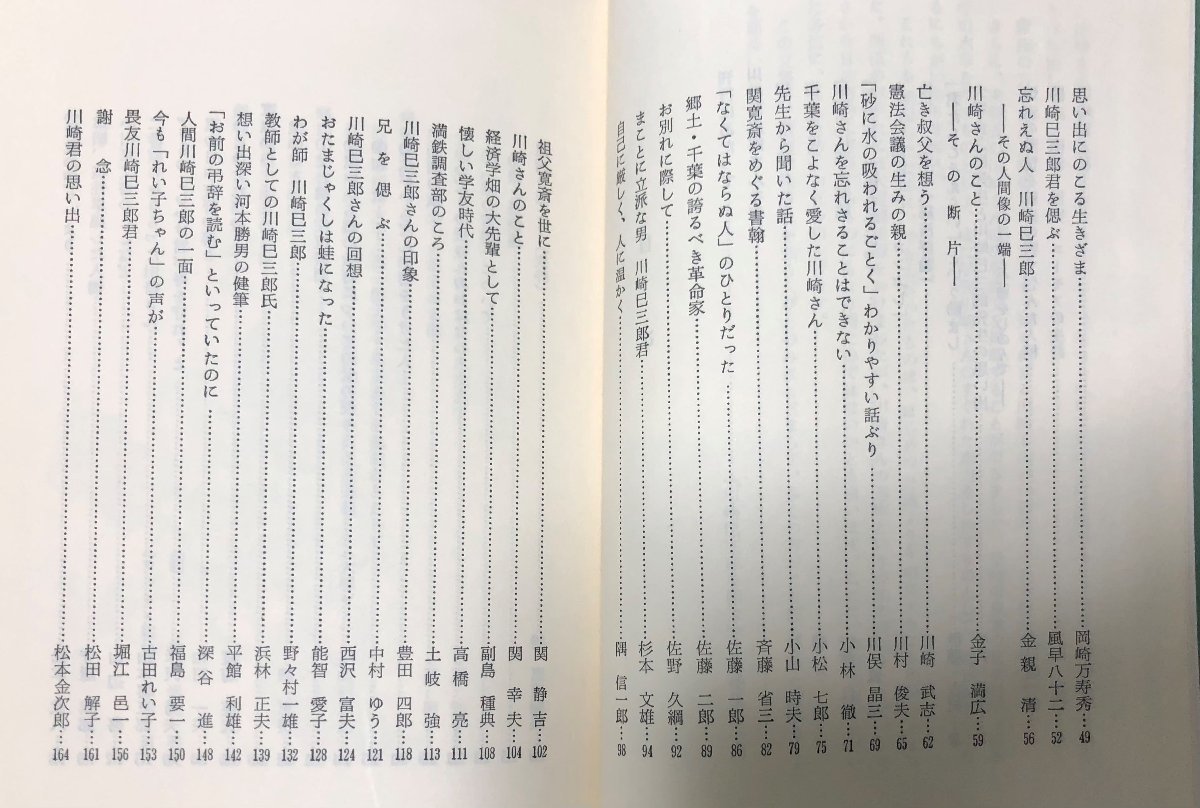 思い出にのこる生きざま……岡崎万寿秀…49
川崎巳三郎君を偲ぶ……風早八十二…52
忘れえぬ人　川崎巳三郎
――その人間像の一端――……金親　清…56
川崎さんのこと
――その断片――……金子　満広…59
亡き叔父を想う……川崎　武志…62
憲法会議の生みの親……川村　俊夫…65
「砂に水の吸われるごとく」わかりやすい話ぶり……川俣　晶三…69
川崎さんを忘れさることはできない……小林　徹…71
千葉をこよなく愛した川崎さん……小松　七郎…75
先生から聞いた話……小山　時夫…79
関寛斎をめぐる書翰……斉藤　省三…82
「なくてはならぬ人」のひとりだった……佐藤　一郎…86
郷土・千葉の誇るべき革命家……佐藤　二郎…89
お別れに際して……佐野　久綱…92
まことに立派な男　川崎巳三郎君……杉本　文雄…94
自己に厳しく、人に温かく……隅　信一郎…98
祖父寛斎を世に……関　静吉…102
川崎さんのこと……関　幸夫…104
経済学畑の大先輩として……副島　種典…108
懐しい学友時代……高橋　亮…111
満鉄調査部のころ……土岐　強…113
川崎巳三郎さんの印象……豊田　四郎…118
兄を偲ぶ……中村　ゆう…121
川崎巳三郎さんの回想……西沢　富夫…124
おたまじゃくしは蛙になった……能智　愛子…128
わが師　川崎巳三郎……野々村一雄…132
教師としての川崎巳三郎氏……浜林　正夫…139
想い出深い河本勝男の健筆……平館　利雄…142
「お前の弔辞を読む」といっていたのに……深谷　進…148
人間川崎巳三郎の一面……福島　要一…150
今も「れい子ちゃん」の声が……古田れい子…153
畏友川崎巳三郎君……堀江　邑一…156
謝　念……松田　解子…161
川崎君の思い出……松本金次郎…164